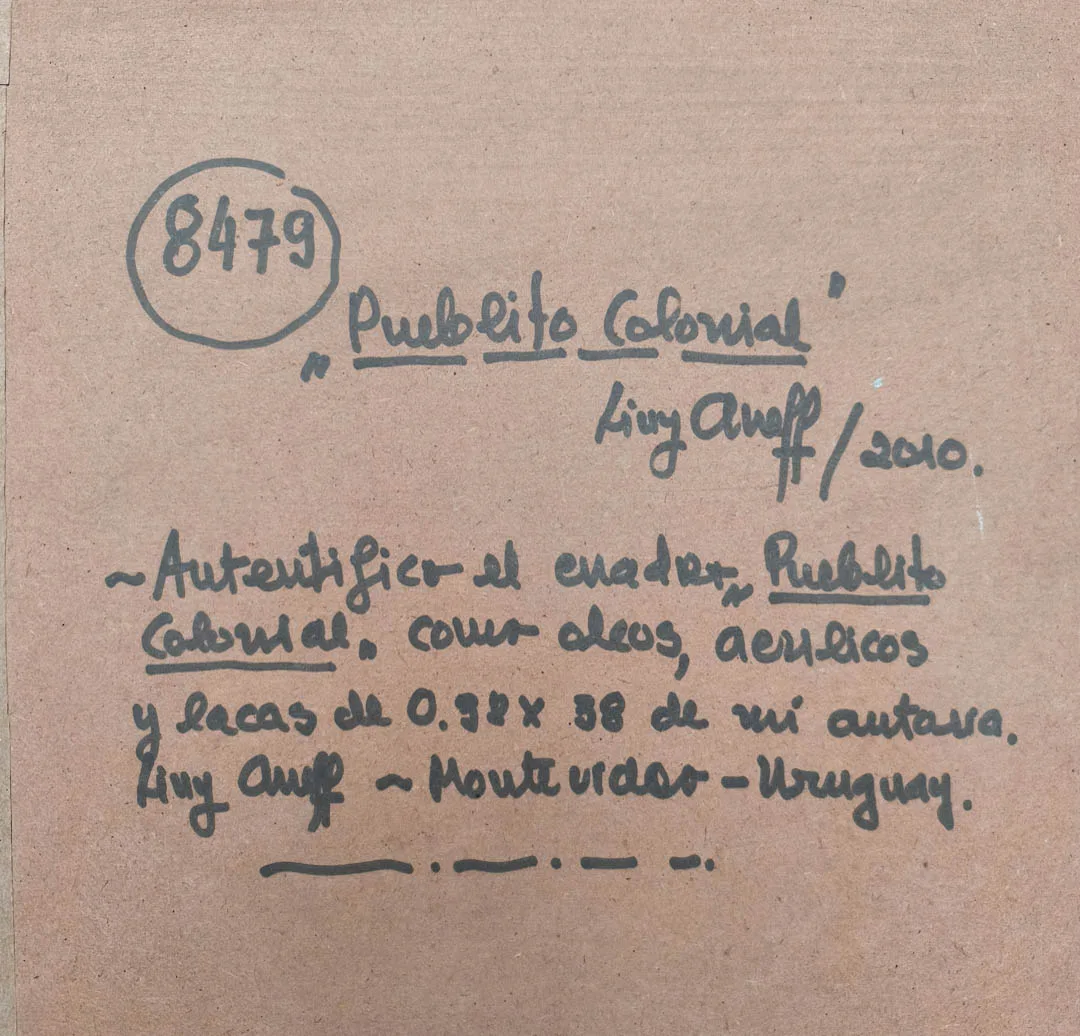 8479
„Pueblito Colonial"
Livy Aneff/2010.
~Autentifico el cuadro „Pueblito
Colonial„ como oleos, acrilicos
y lacas de 0.38 x 38 de mi autoria.
Livy Aneff ~ Montevideo - Uruguay.